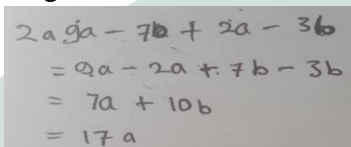 2a 9a - 7b + 2a - 3b
= 9a - 2a + 7b - 3b
= 7a + 10b
= 17a